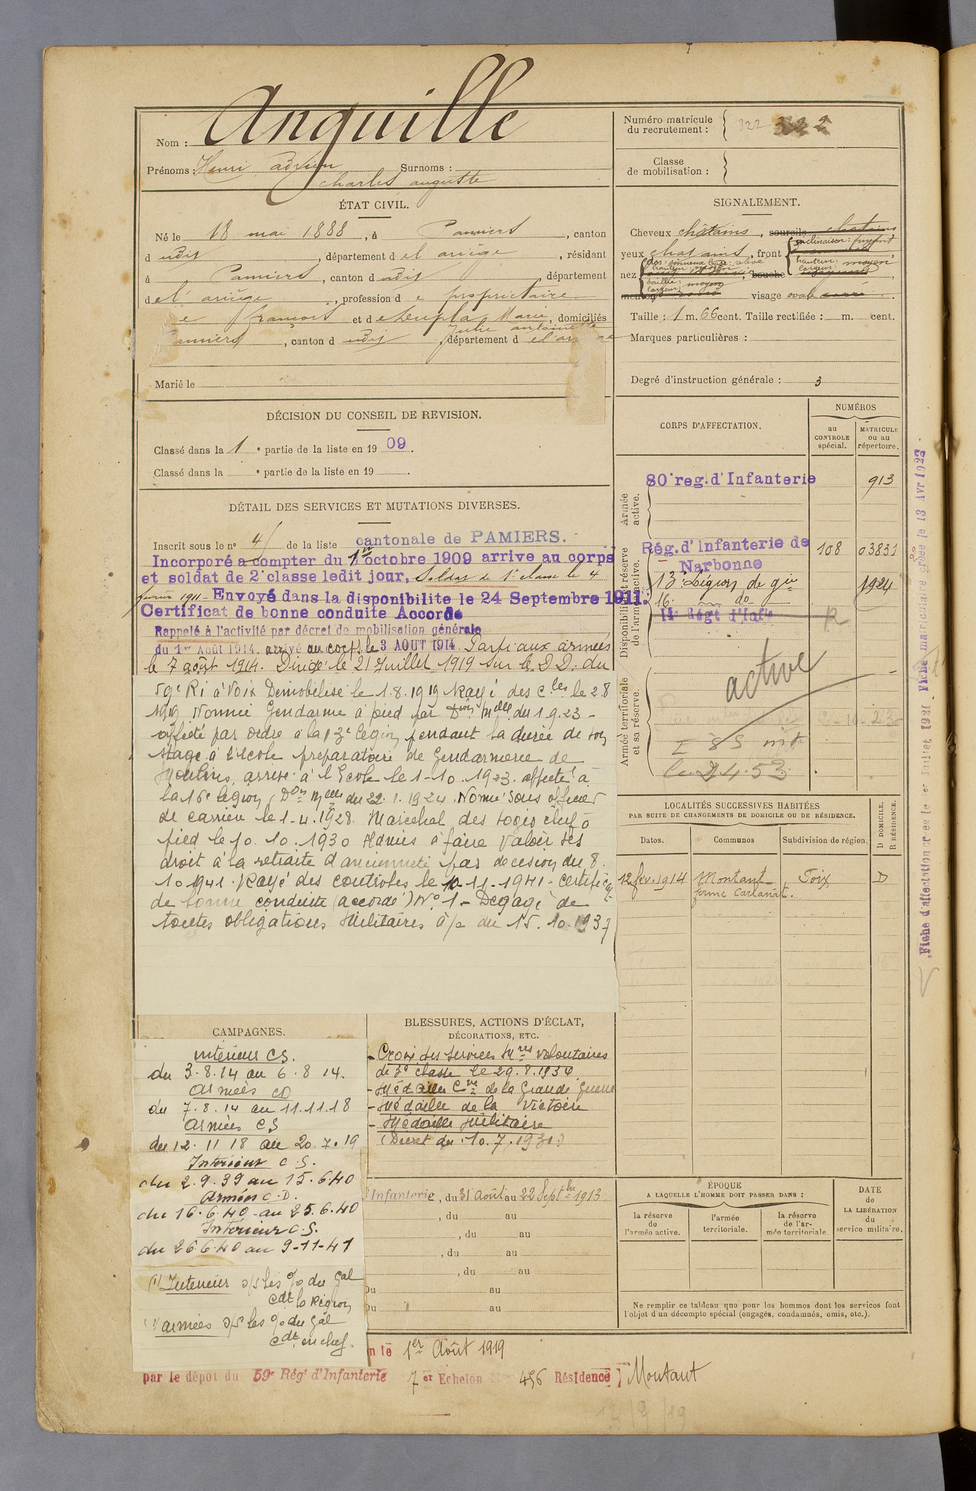 Nom : Anquille
Prénoms : Henri adrien Surnoms :
charles auguste
ÉTAT CIVIL.
Né le 18 mai 1888, à Pamiers, canton
d udit, département d el ariège, résidant
à Pamiers, canton d udit département
d el ariège, profession d e propriétaire
e françois et d e Marie, domiciliés
Julie antoinette
amiers, canton d udit, département d el ariège
Marié le
DÉCISION DU CONSEIL DE REVISION.
Classé dans la 1e partie de la liste en 1909.
Classé dans la e partie de la liste en 19 .
DÉTAIL DES SERVICES ET MUTATIONS DIVERSES.
Inscrit sous le nº 4 de la liste cantonale de PAMIERS.
Incorporé a compter du 1er octobre 1909 arrive au corps
et soldat de 2e classe ledit jour. Soldat de 1e classe le 4
février 1911 Envoyé dans la disponibilite le 24 Septembre 1911.
Certificat de bonne conduite Accordé
Rappelé à l'activité par décret de mobilisation générale
du 1er Août 1914. arrivé au corps le 3 AOUT 1914 Parti aux armées
le 7 août 1914. Dirigé le 21 Juillet 1919 sur le D.D. du
59e RI à Foix Démobilisé le 1.8.1919 Rayé des cles le 28
1919 Nommé Gendarme à pied par Don Melle du 1.9.23 -
affecté par ordre à la 13e Légion pendant la durée de son
stage à l'Ecole préparatoire de Gendarmerie de
Moulins, arrivé à l'Ecole le 1-10.1923. affecté à
la 16e légion, Don Melle du 22.1.1924. Nommé sous officier
de carrière le 1-4.1928. Maréchal des logis chef à
pied le 10.10.1930 Admis à faire valoir ses
droit à la retraite d'ancienneté par décision du 8.
10 1941. Rayé des controles le 10-11-1941 - certificat
de bonne conduite (accordé) Nº 1 - Dégagé de
toutes obligations Militaires à/c du 15.10.1937
CAMPAGNES.
intérieur CS.
du 3.8.14 au 6.8 14.
armées CD
du 7.8.14 au 11.11.18
armées CS
du 12.11 18 au 20.7.19
Intérieur C.S.
du 2.9.39 au 15.6.40
Armées C.D.
du 16.6.40 au 25.6.40
Intérieur C.S.
du 26 6.40 au 9-11-41
(1) Intérieur o/s les o/o du Gal
Cdt la Région
(1) armées o/s les o/o du Gal
Cdt en chef.
BLESSURES, ACTIONS D'ÉCLAT,
DÉCORATIONS, ETC.
- Croix des Services Mres volontaires
de 3e classe le 29.8.1936
- Médaille Cve de la Grande Guerre
- Médaille de la Victoire
- Médaille Militaire
(Décret du 10.7.1931)
Infanterie, du 31 Août au 22 Septbre 1913
, du au
, du au
, du au
, du au
Du au
Du au
n le 1er Août 1919
par le dépôt du 59e Régt d'Infanterie 7er Echelon Nº 456 Résidence ] Montaut
Numéro matricule
du recrutement : 322 322
Classe
de mobilisation :
SIGNALEMENT.
Cheveux châtains, sourcils chatains
yeux chatains, front
inclinaison : fuyant
hauteur : moyen
largeur : moyen
nez
dos : sinueux base : relevé
hauteur : moyen
saillie : moyen
largeur : moyen
bouche
menton rond visage ovale
Taille : 1 m. 66 cent. Taille rectifiée : m. cent.
Marques particulières :
Degré d'instruction générale : 3
CORPS D'AFFECTATION.
NUMÉROS
au
CONTROLE
spécial.
MATRICULE
ou au
répertoire.
Armée
active.
80e reg. d'Infanterie 913
Disponibilité et réserve
de l'armée active.
Rég. d'Infanterie de 108 03831
Narbonne
13e Légion de Gie 1924
16. do
14e Régt d'Inf. R
Armée territoriale
et sa réserve.
active
le 24.53
LOCALITÉS SUCCESSIVES HABITÉES
PAR SUITE DE CHANGEMENTS DE DOMICILE OU DE RÉSIDENCE.
Dates. Communes Subdivision de région.
D DOMICILE.
R RÉSIDENCE.
12 fév. 1914 Montaut Foix D
ferme Carlanat.
ÉPOQUE
A LAQUELLE L'HOMME DOIT PASSER DANS :
la réserve
de
l'armée active.
l'armée
territoriale.
la réserve
de l'ar-
mée territoriale.
DATE
de
LA LIBÉRATION
du
service militaire.
Ne remplir ce tableau que pour les hommes dont les services font
l'objet d'un décompte spécial (engagés, condamnés, omis, etc.).